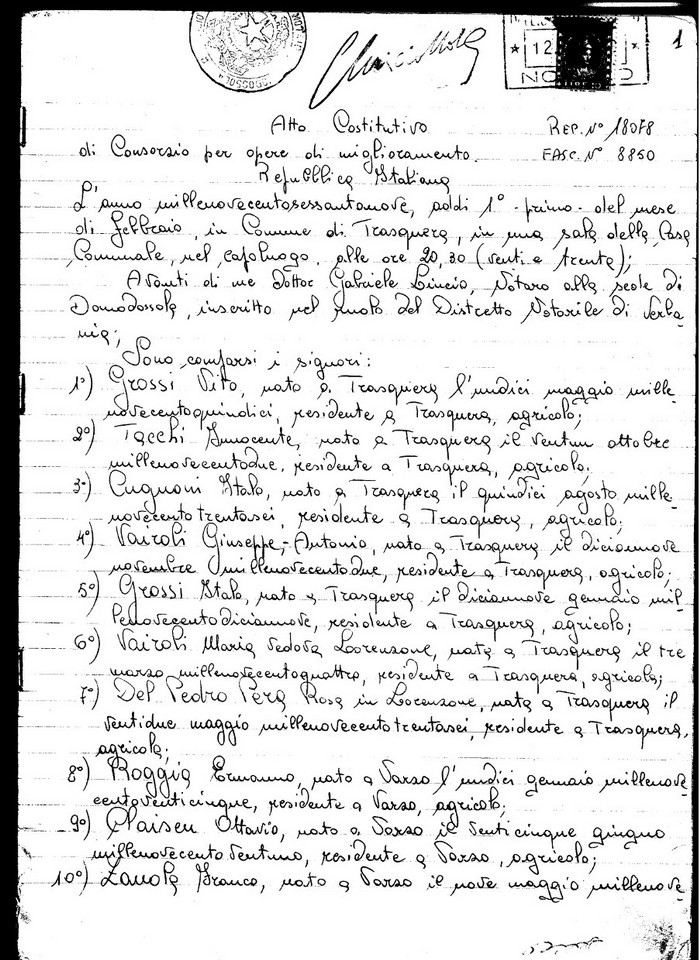 1
Atto Costitutivo REP. N° 18078
di Consorzio per opere di miglioramento. FASC. N° 8850
Repubblica Italiana
L'anno millenovecentosessantanove, addì 1° - primo - del mese
di febbraio, in Comune di Trasquera, in una sala della Casa
Comunale, nel capoluogo, alle ore 20,30 (venti e trenta);
Avanti di me dottor Gabriele Lincio, Notaro alla sede di
Domodossola, inscritto nel ruolo del Distretto Notarile di Verba
nia;
Sono comparsi i signori:
1°) Grossi Vito, nato a Trasquera l'undici maggio mille
novecentoquindici, residente a Trasquera, agricolo;
2°) Tacchi Innocente, nato a Trasquera il ventun ottobre
millenovecentodue, residente a Trasquera, agricolo;
3°) Cugnoni Italo, nato a Trasquera il quindici agosto mille
novecentotrentasei, residente a Trasquera, agricolo;
4°) Vairoli Giuseppe-Antonio, nato a Trasquera il diciannove
novembre millenovecentodue, residente a Trasquera, agricolo;
5°) Grossi Italo, nato a Trasquera il diciannove gennaio mil
lenovecentodiciannove, residente a Trasquera, agricolo;
6°) Vairoli Maria vedova Lorenzone, nata a Trasquera il tre
marzo millenovecentoquattro, residente a Trasquera, agricola;
7°) Del Pedro Pera Rosa in Lorenzone, nata a Trasquera il
ventidue maggio millenovecentotrentasei, residente a Trasquera,
agricola;
8°) Roggia Ermanno, nato a Varzo l'undici gennaio millenove
centoventicinque, residente a Varzo, agricolo;
9°) Plaisen Ottavio, nato a Varzo il venticinque giugno
millenovecentoventuno, residente a Varzo, agricolo;
10°) Zanola Franco, nato a Varzo il nove maggio millenove